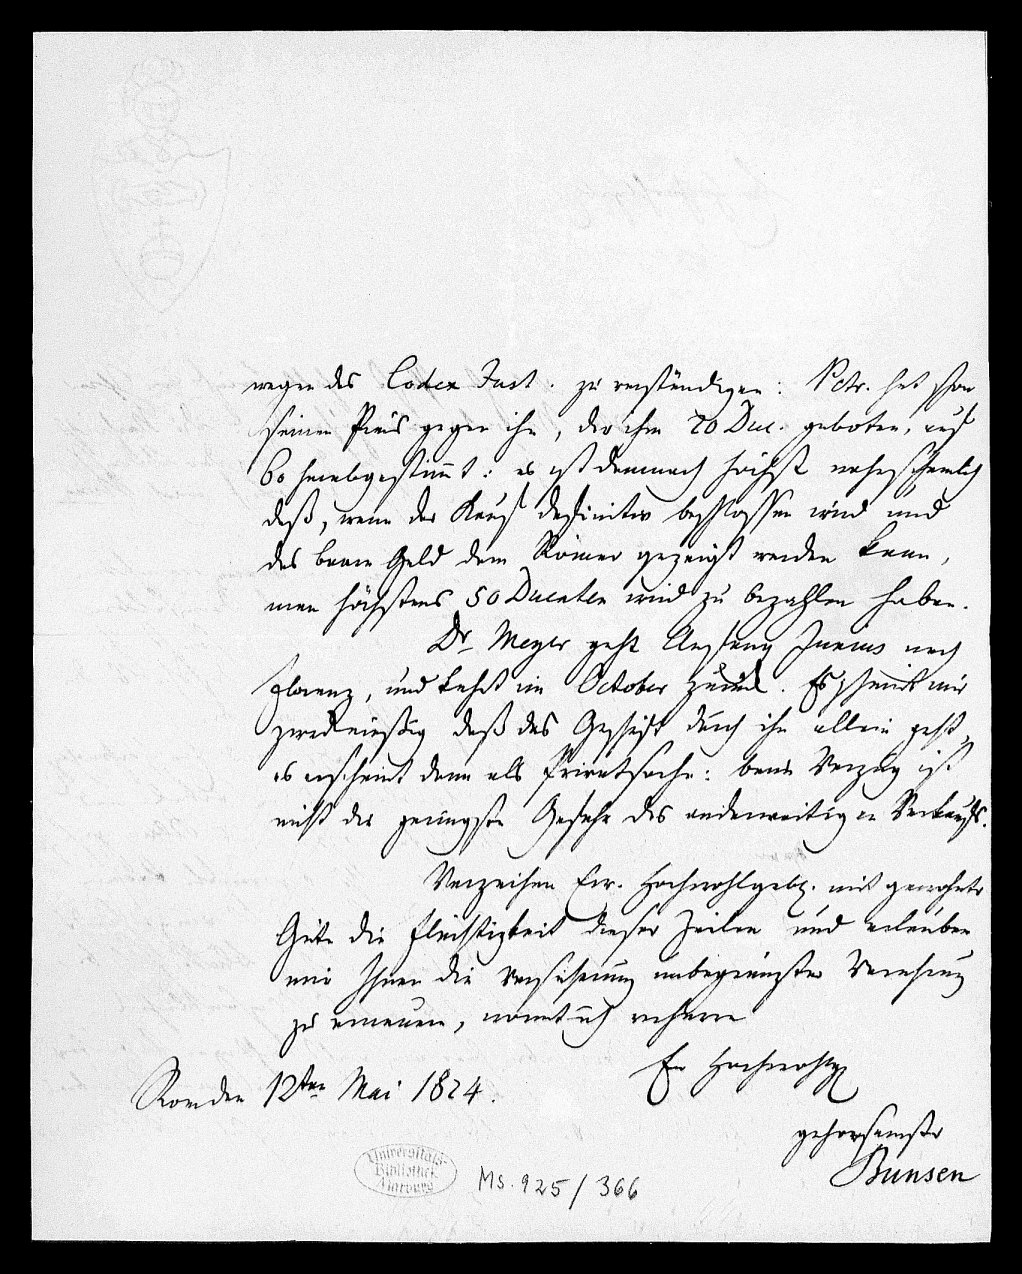 wegen des Codex Just. zu verständigen: Petr. hat schon
seinen Preis gegen ihn, der ihm 20 Duc. geboten, auf
60 herabgestimmt: es ist demnach höchst wahrscheinlich
daß, wenn der Kauf definitiv beschlossen wird und
das baare Geld dem Römer gezeigt werden kann,
man höchstens 50 Ducaten wird zu bezahlen haben.
Dr. Meyer geht Anfang Junius nach
Florenz, und kehrt im October zurück. Es scheint mir
zweckmäßig daß das Geschäft durch ihn allein geht,
es erscheint dann als Privatsache: beim Verzug ist
nicht die geringste Gefahr des anderweitigen Verkaufs.
Verzeihen Ew. Hochwohlgeb. mit gewohnter
Güte die Flüchtigkeit dieser Zeilen und erlauben
mir Ihnen die Versicherung unbegränzter Verehrung
zu erneuern, womit ich verharre
Ew Hochwohlg
Rom den 12ten Mai 1824.
gehorsamster
Bunsen
Universitäts-
Bibliothek
Marburg
Ms. 925/366